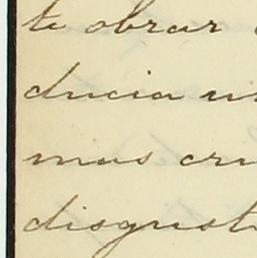 te obrar
ducia
mas
disgust